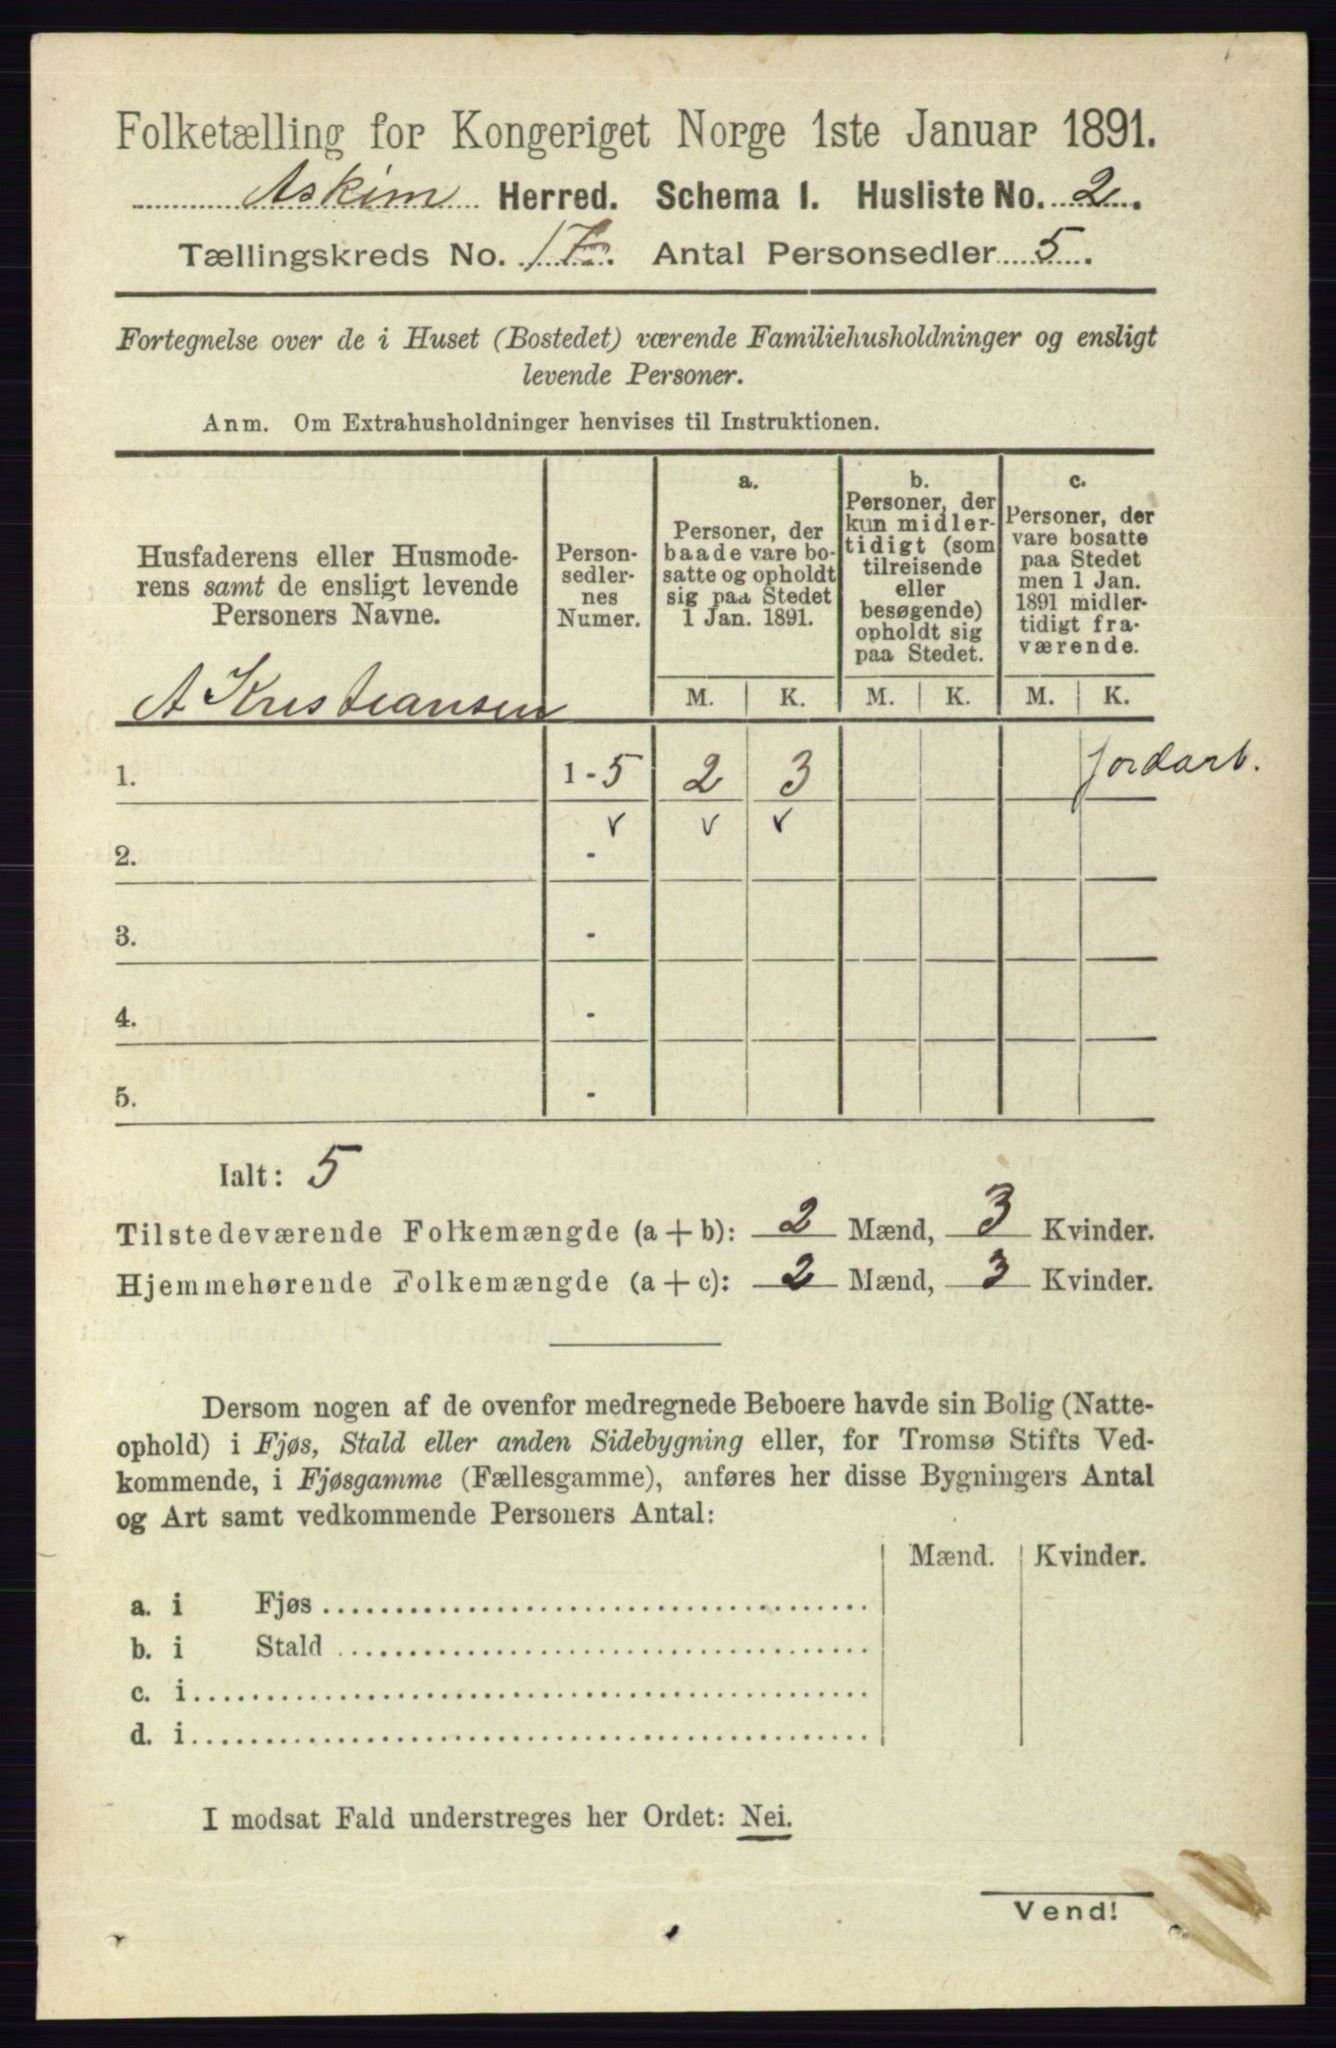 Folketælling for Kongeriget Norge 1ste Januar 1891.
Askim Herred. Schema I. Husliste No. 2.
Tællingskreds No. 17. Antal Personsedler 5.
Fortegnelse over de i Huset (Bostedet) værende Familiehusholdninger og ensligt
levende Personer.
Anm. Om Extrahusholdninger henvises til Instruktionen.
Husfaderens eller Husmode-
rens samt de ensligt levende
Personers Navne.
Person-
sedler-
nes
Numer.
a.
Personer, der
baade vare bo-
satte og opholdt
sig paa Stedet
1 Jan. 1891.
b.
Personer, der
kun midler-
tidigt (som
tilreisende
eller
besøgende)
opholdt sig
paa Stedet.
c.
Personer, der
vare bosatte
paa Stedet
men 1 Jan.
1891 midler-
tidigt fra-
værende.
M. K. M. K. M. K.
A Kristiansen
1. 1 - 5 2 3 Jordarb.
v v v
2. -
3. -
4. -
5. -
Ialt: 5
Tilstedeværende Folkemængde (a + b): 2 Mænd, 3 Kvinder.
Hjemmehørende Folkemængde (a + c): 2 Mænd, 3 Kvinder.
Dersom nogen af de ovenfor medregnede Beboere havde sin Bolig (Natte-
ophold) i Fjøs, Stald eller anden Sidebygning eller, for Tromsø Stifts Ved-
kommende, i Fjøsgamme (Fællesgamme), anføres her disse Bygningers Antal
og Art samt vedkommende Personers Antal:
Mænd. Kvinder.
a. i Fjøs
b. i Stald
c. i
d. i
I modsat Fald understreges her Ordet: Nei.
Vend!